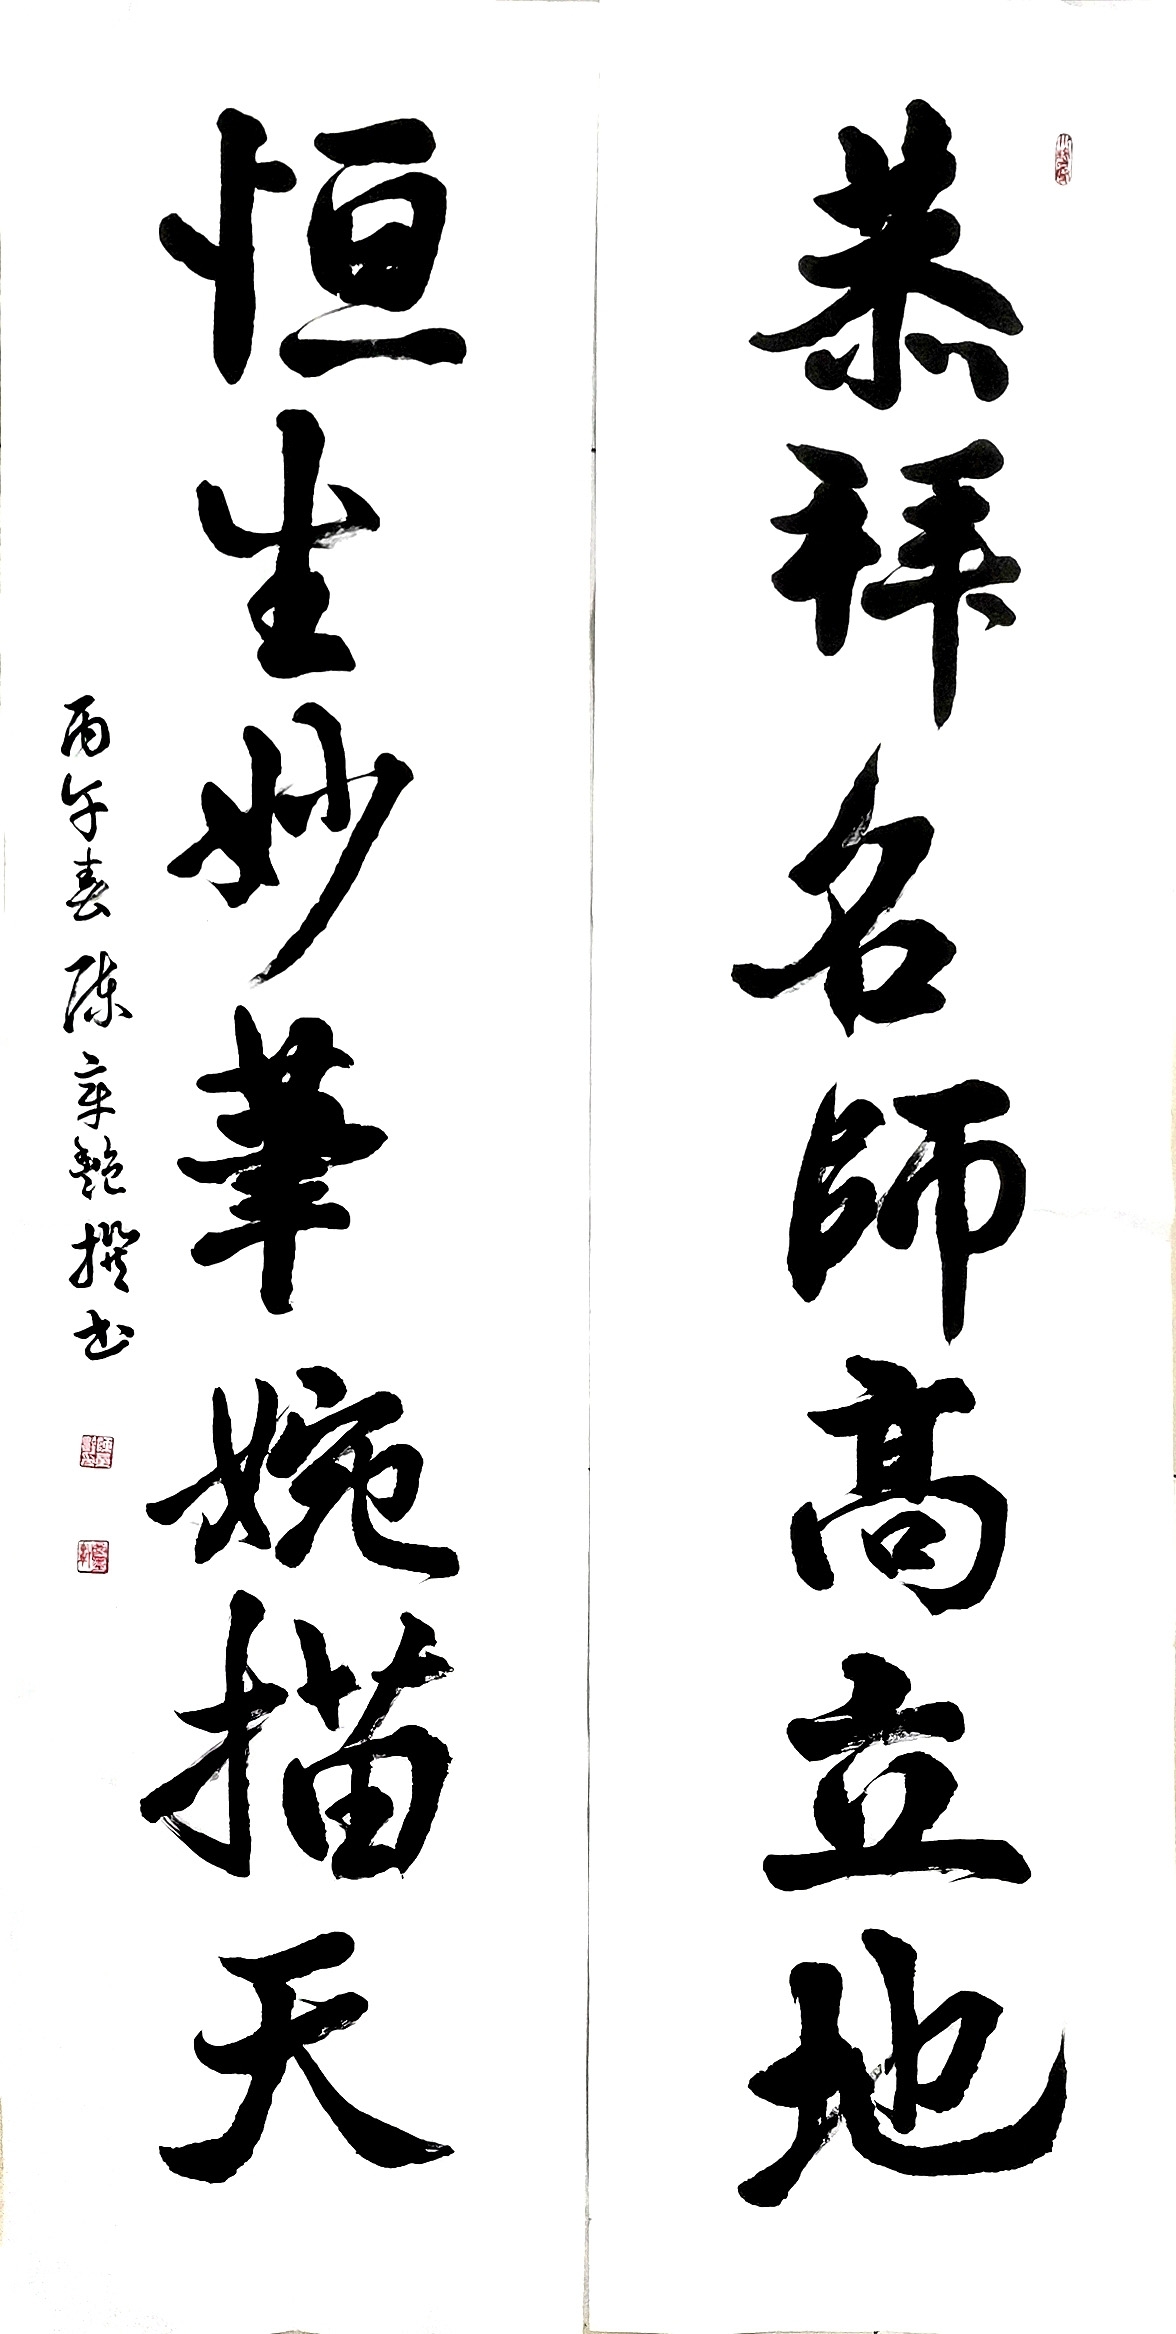 恭拜名師高立地
恒生妙筆婉描天
丙午春 陳章艷撰书